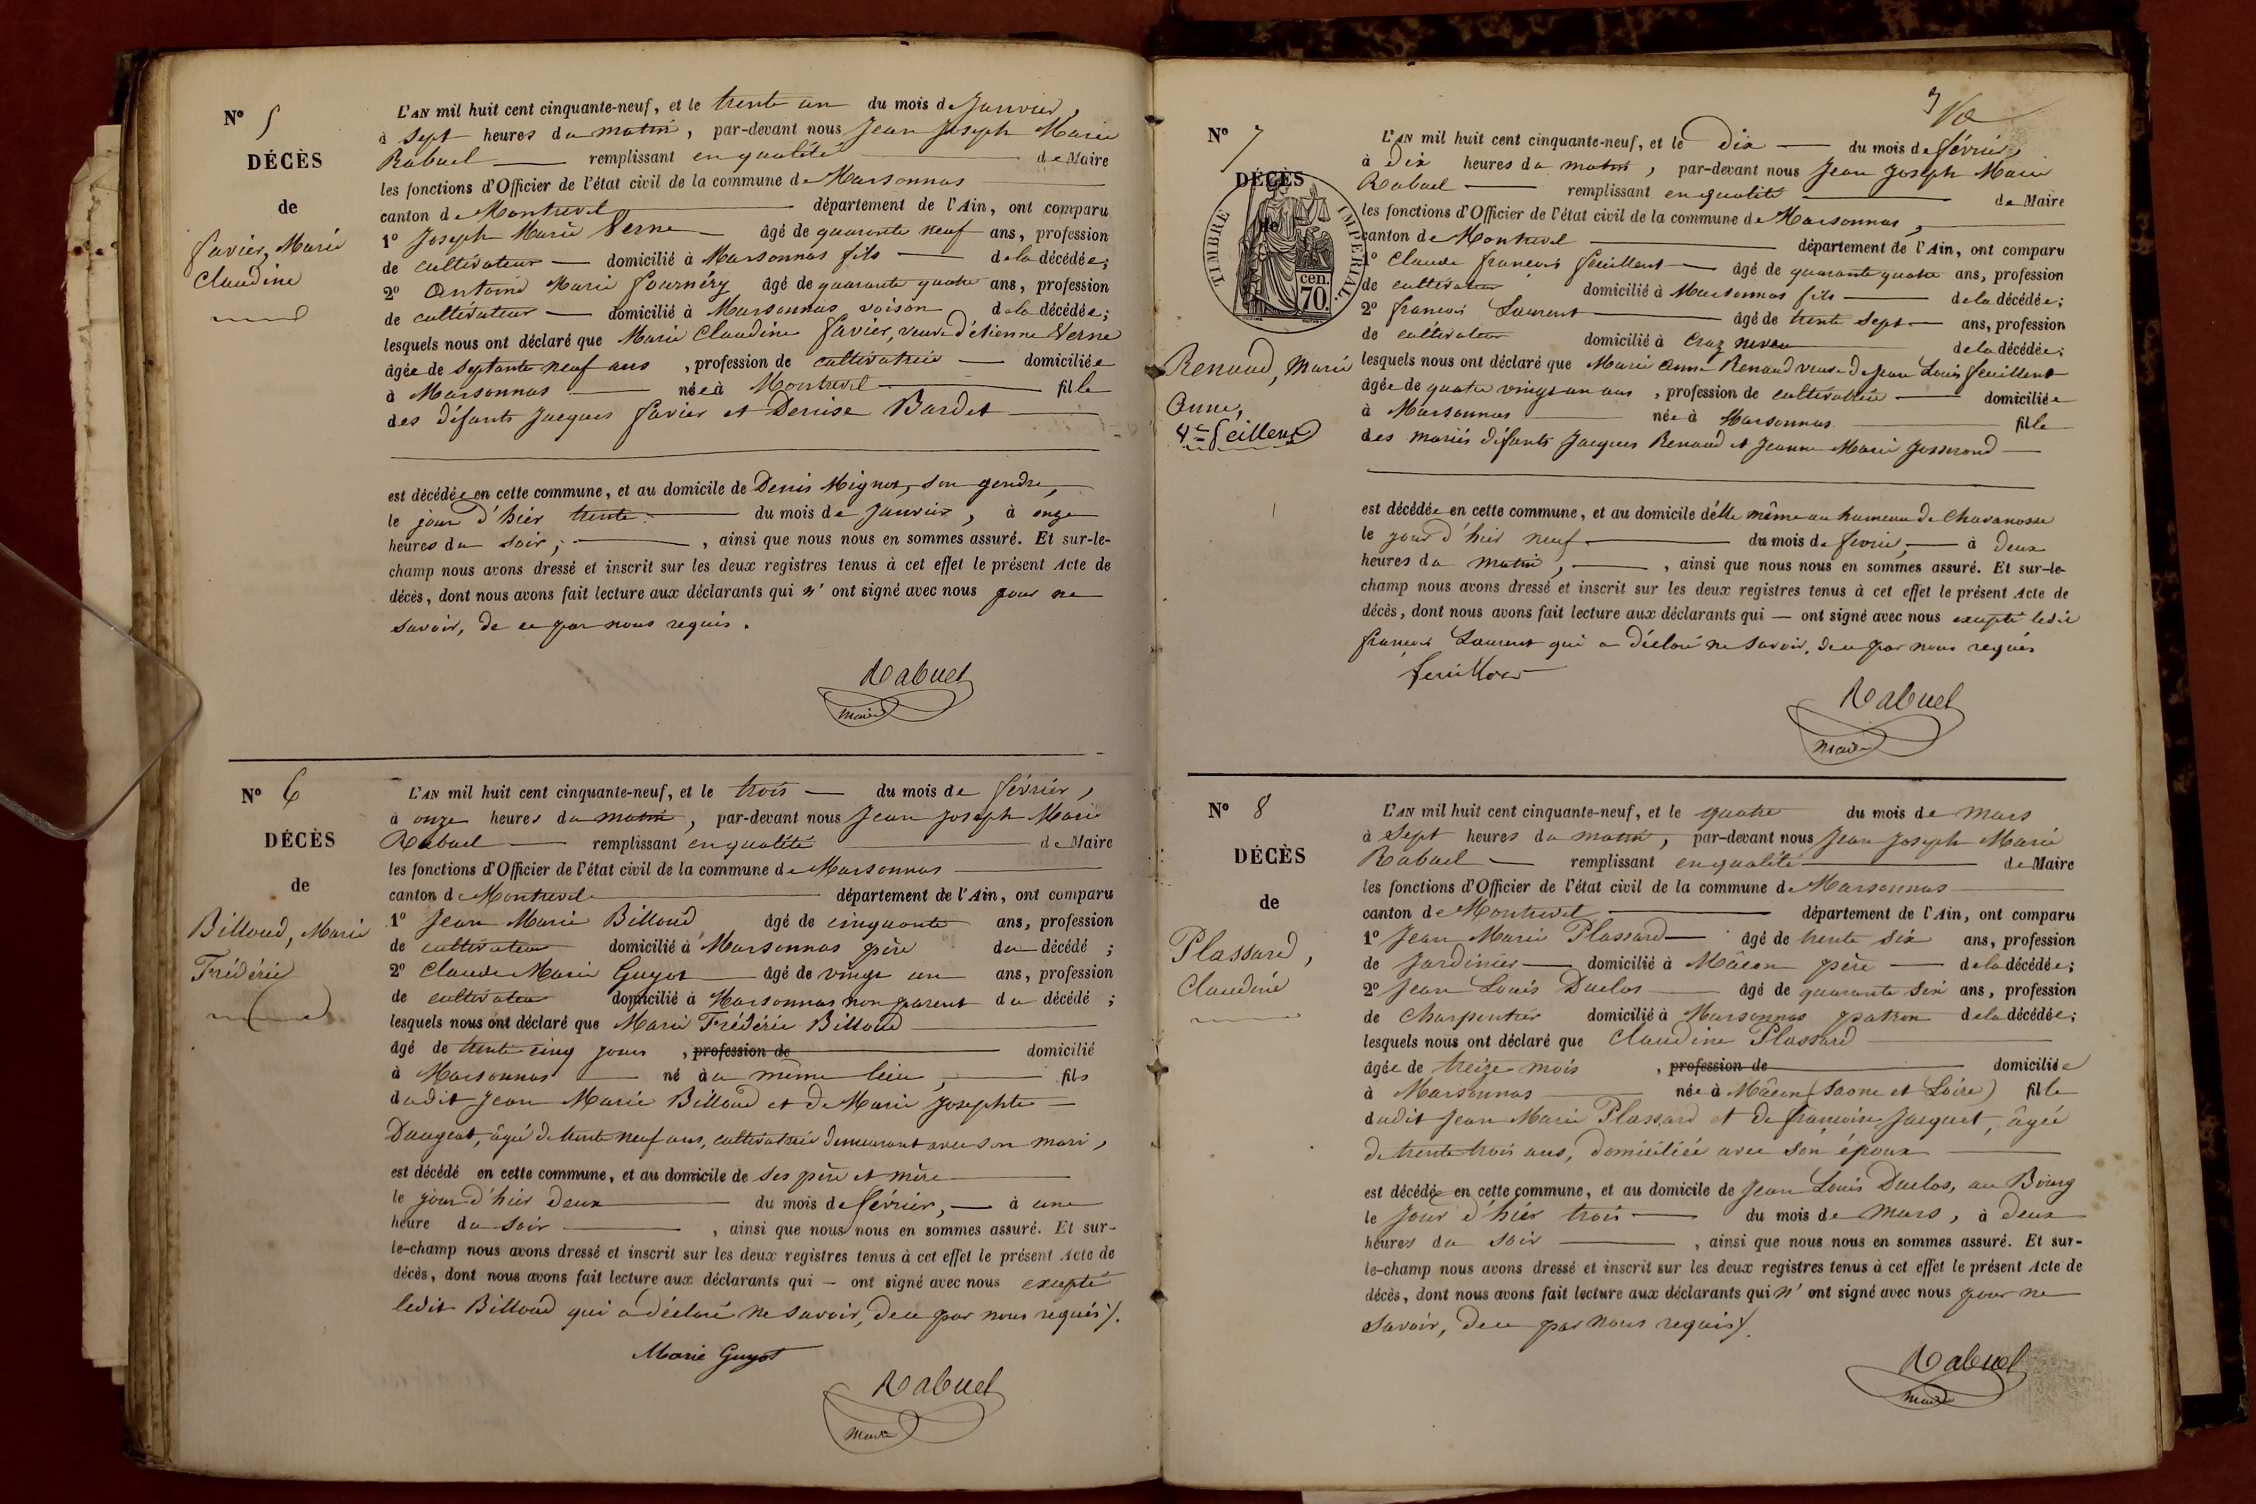 N° 5
DÉCÈS
de
favier, Marie
Claudine
L'AN mil huit cent cinquante-neuf, et le trente un du mois de Janvier,
à sept heures du matin, par-devant nous Jean Joseph Marie
Rabuel remplissant en qualité de Maire
les fonctions d'Officier de l'état civil de la commune de Marsonnas
canton de Montrevel département de l'Ain, ont comparu
1° Joseph Marie Verne âgé de quarante neuf ans, profession
de cultivateur domicilié à Marsonnas fils de la décédée;
2° Antoine Marie fournéry âgé de quarante quatre ans, profession
de cultivateur domicilié à Marsonnas voison de la décédée;
lesquels nous ont déclaré que Marie Claudine favier, veuve d'étienne Verne
âgée de septante neuf ans, profession de cultivatrice domiciliée
à Marsonnas née à Montrevel fille
des défants Jacques favier et Denise Bardet
est décédée en cette commune, et au domicile de Denis Mignot, son gendre,
le jour d'hier trente du mois de janvier, à onze
heures du soir; , ainsi que nous nous en sommes assuré. Et sur-le-
champ nous avons dressé et inscrit sur les deux registres tenus à cet effet le présent Acte de
décès, dont nous avons fait lecture aux déclarants qui n' ont signé avec nous pour ne
savoir, de ce par nous requis.
Rabuel
maire
N° 6
DÉCÈS
de
Billoud, Marie
Frédéric
L'AN mil huit cent cinquante-neuf, et le trois du mois de février,
à onze heures du matin, par-devant nous Jean Joseph Marie
Rabuel remplissant en qualité de Maire
les fonctions d'Officier de l'état civil de la commune de Marsonnas
canton de Montrevel département de l'Ain, ont comparu
1° Jean Marie Billoud âgé de cinquante ans, profession
de cultivateur domicilié à Marsonnas père du décédé ;
2° Claude Marie Guyot âgé de vingt un ans, profession
de cultivateur domicilié à Marsonnas non parent du décédé ;
lesquels nous ont déclaré que Marie Frédéric Billoud
âgé de trente cinq jours , profession de domicilié
à Marsonnas né au même lieu, fils
dudit Jean Marie Billoud et de Marie Josephte
Daugeat, âgée de trente neuf ans, cultivatrice demeurant avec son mari,
est décédé en cette commune, et au domicile de ses père et mère
le jour d'hier deux du mois de février, à une
heure du soir , ainsi que nous nous en sommes assuré. Et sur-
le-champ nous avons dressé et inscrit sur les deux registres tenus à cet effet le présent Acte de
décès, dont nous avons fait lecture aux déclarants qui — ont signé avec nous excepté
ledit Billoud qui a déclaré ne savoir, de ce par nous requis/.
Marie Guyot
Rabuel
maire
N° 7
DÉCÈS
de
TIMBRE IMPÉRIAL.
cen. 70.
Renaud, Marie
Anne,
Vve feillens
L'AN mil huit cent cinquante-neuf, et le dix du mois de février,
à dix heures du matin, par-devant nous Jean Joseph Marie
Rabuel remplissant en qualité de Maire
les fonctions d'Officier de l'état civil de la commune de Marsonnas,
canton de Montrevel département de l'Ain, ont comparu
1° Claude françois feuillent âgé de quarante quatre ans, profession
de cultivateur domicilié à Marsonnas fils de la décédée;
2° françois Laurent âgé de trente sept ans, profession
de cultivateur domicilié à Craz neveu de la décédée;
lesquels nous ont déclaré que Marie Anne Renaud veuve de Jean Louis feuillent
âgée de quatre vingt un ans, profession de cultivatrice domiciliée
à Marsonnas née à Marsonnas fille
des mariés défunts Jacques Renaud et Jeanne Marie Josserond
est décédée en cette commune, et au domicile d'elle même au hameau de Chavanosse
le jour d'hier neuf du mois de fevrier, à deux
heures du matin, , ainsi que nous nous en sommes assuré. Et sur-le-
champ nous avons dressé et inscrit sur les deux registres tenus à cet effet le présent Acte de
décès, dont nous avons fait lecture aux déclarants qui — ont signé avec nous excepté ledit
françois Laurent qui a déclaré ne savoir, de ce par nous requis
Rabuel
maire
N° 8
DÉCÈS
de
Plassard,
Claudine
L'AN mil huit cent cinquante-neuf, et le quatre du mois de mars
à sept heures du matin, par-devant nous Jean Joseph Marie
Rabuel remplissant en qualité de Maire
les fonctions d'Officier de l'état civil de la commune de Marsonnas
canton de Montrevel département de l'Ain, ont comparu
1° Jean Marie Plassard âgé de trente six ans, profession
de Jardinier domicilié à Mâcon père de la décédée;
2° Jean Louis Duclos âgé de quarante six ans, profession
de charpentier domicilié à Marsonnas patron de la décédée;
lesquels nous ont déclaré que Claudine Plassard
âgée de treize mois , profession de domiciliée
à Marsonnas née à Mâcon (Saone et Loire) fille
dudit Jean Marie Plassard et de françoise Jacquet, âgée
de trente trois ans, domiciliée avec son époux
est décédée en cette commune, et au domicile de Jean Louis Duclos, au Bourg
le jour d'hier trois du mois de mars, à deux
heures du soir , ainsi que nous nous en sommes assuré. Et sur-
le-champ nous avons dressé et inscrit sur les deux registres tenus à cet effet le présent Acte de
décès, dont nous avons fait lecture aux déclarants qui n' ont signé avec nous pour ne
savoir, de ce par nous requis/.
Rabuel
maire